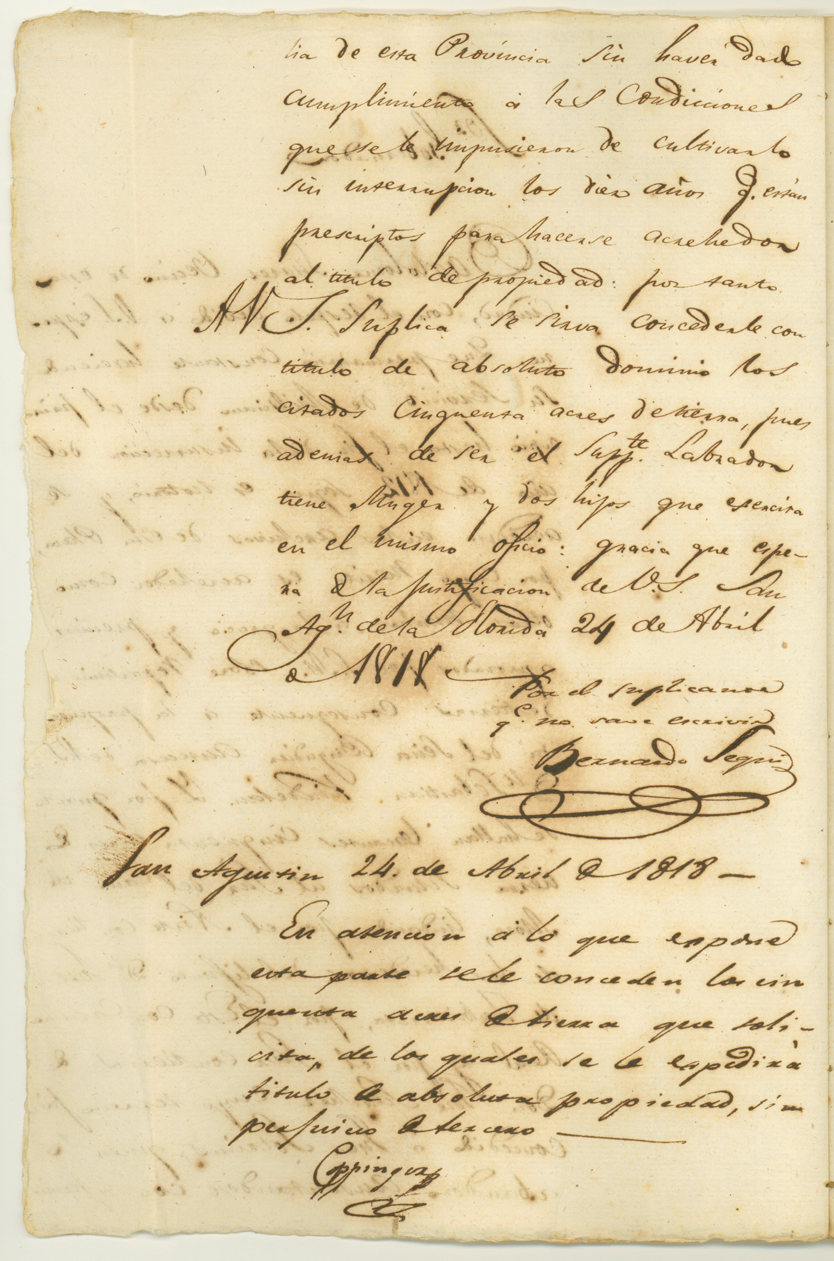 lia de esta Provincia sin haver dado
cumplimiento á las Condicciones
que se le impusieron de cultivarlo
sin interrupcion los diez años q. están
prescriptos para hacerse acrehedor
al titulo de propiedad: por tanto
A V S. Suplica se sirva concederle con
titulo de absoluto dominio los
citados Cinquenta acres de tierra, pues
ademas de ser el Supp.te Labrador
tiene Muger y dos hijos que exercita
en el mismo oficio: gracia que espe-
ra de la justificacion de V.S. San
Ag.n de la Florida 24 de Abril
de 1818
Por el suplicante
q.e no save escrivir
Bernardo Segui
San Agustin 24. de Abril de 1818 —
En atencion á lo que expone
esta parte se le conceden los cin
quenta acres de tierra que soli-
cita, de los quales se le expedirá
titulo de absoluta propiedad, sin
perjuicio de tercero —
Coppinger